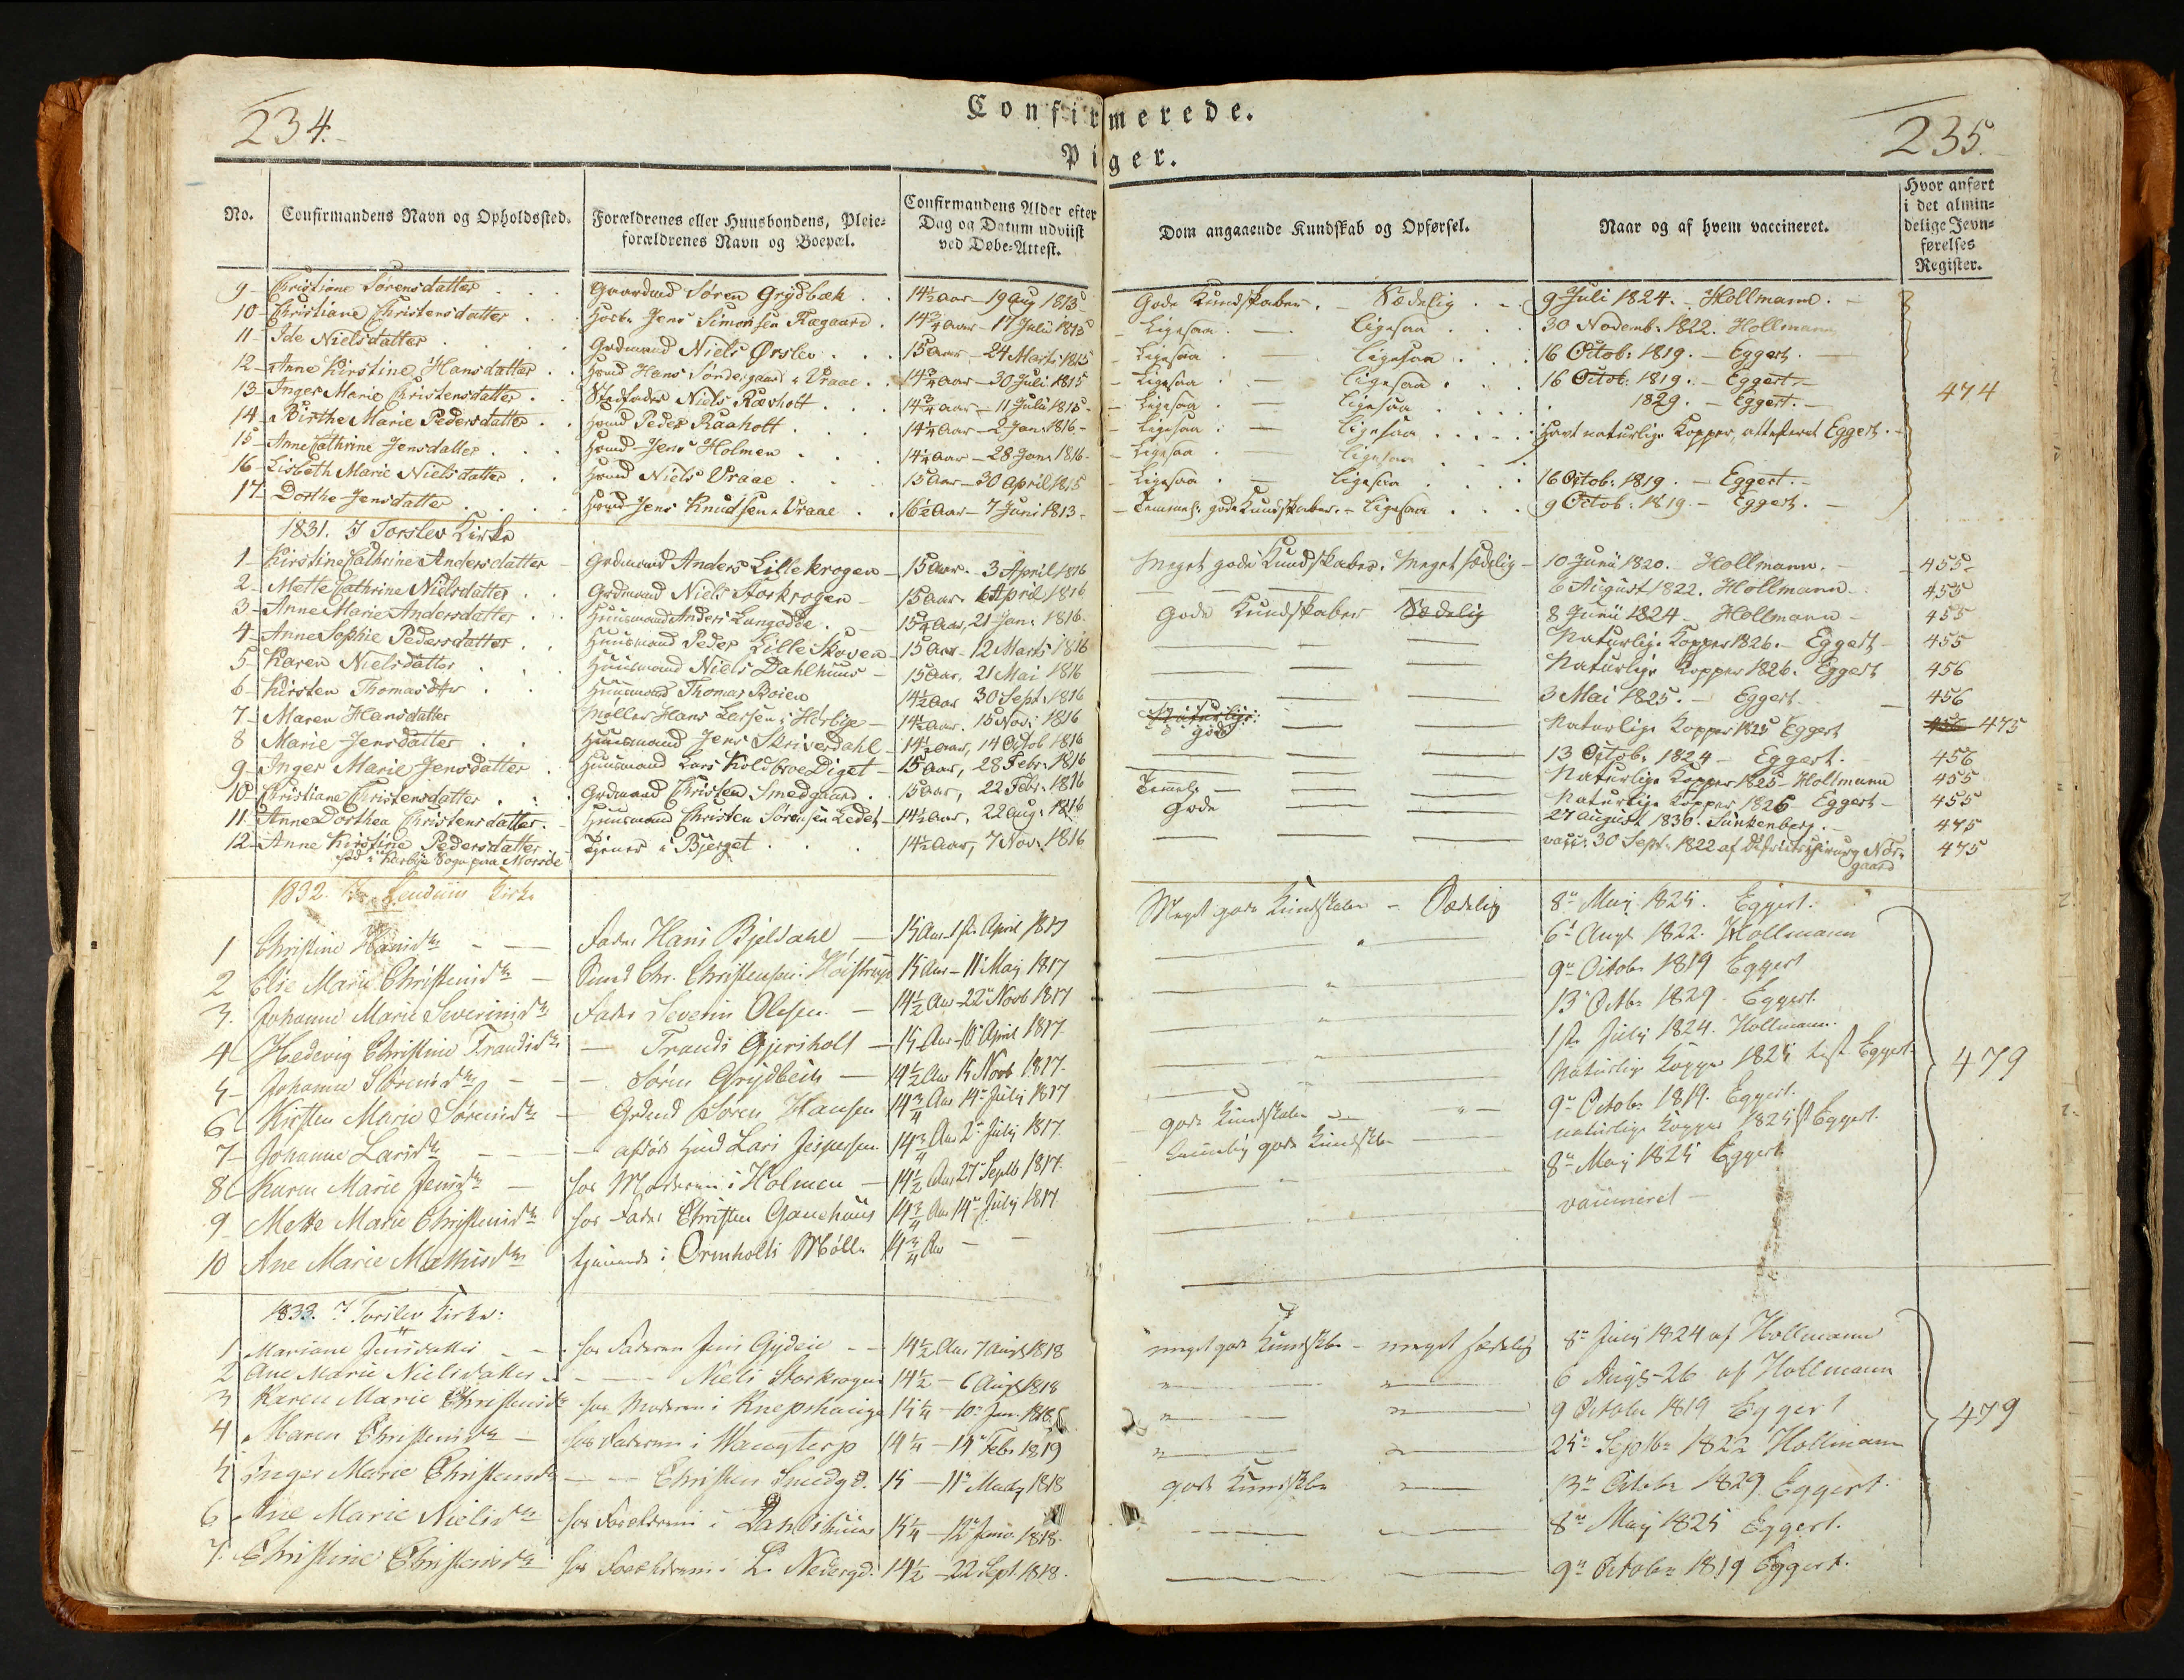 234.
Confirmerede.
235.
Piger.
No. Confirmandens Navn og Opholdssted. Forældrenes eller Huusbondens, Pleie=forældrenes Navn og Boepæl. Confirmandens Alder efter Dag og Datum udviist ved Døbe=Attest. Dom angaaende Kundskab og Opførsel. Naar og af hvem vaccineret. Hvor anført i det almin=delige Jevn=førelses Register.
9 Christiane Sørensdatter Gaardmd Søren Grydbæk 14½ Aar 19 Aug 1815 Gode Kundskaber. Sædelig 9 Juli 1824. Hollmann.
10 Christiane Christensdatter Jens Simonsen 14¾ Aar 17 Juli 1815 Ligesaa. Ligesaa 30 Novemb: 1822. Hollmann
11 Ide Nielsdatter Grdmand Niels Ørslev 15 Aar 24 Marts 1815 Ligesaa Ligesaa 16 Octob: 1819. Eggert.
12 Anne Kirstine Hansdatter Hmd Hans Søndergaard i Vraae 14¾ Aar 30 Juli 1815 Ligesaa Ligesaa 16 Octob: 1819. Eggert.
13 Inger Marie Christensdatter Stedfader Niels Ravholt 14¾ Aar 11 Juli 1815 Ligesaa Ligesaa 1829. Eggert. 474
14 Birthe Marie Pedersdatter Hmd Peder Raaholt 14¼ Aar 2 Jan: 1816 Ligesaa Ligesaa Havt naturlige Kopper, attesteret Eggert.
15 Anne Cathrine Jensdatter Hmd Jens Holmen 14¼ Aar 28 Jan: 1816 Ligesaa Ligesaa
16 Lisbeth Marie Nielsdatter Hmd Niels Vraae 15 Aar 30 April 1815 Ligesaa Ligesaa 16 Octob: 1819. Eggert.
17 Dorthe Jensdatter Hmd Jens Knudsen Vraae 16½ Aar 7 Juni 1813 Temmel: gode Kundskaber. Ligesaa 9 Octob: 1819. Eggert.
1831. I Torslev Kirke
1 Kirstine Cathrine Andersdatter Grdmand Anders Lillekrogen 15 Aar. 3 April 1816 Meget gode Kundskaber. Meget sædelig 10 Junii 1820. Hollmann. 455
2 Mette Cathrine Nielsdatter Grdmand Niels Storkrogen 15 Aar. 6 April 1816 6 August 1822. Hollmann 455
3 Anne Marie Andersdatter Huusmand Anders Langødde 15¼ Aar, 21 Jan: 1816 Gode Kundskaber Sædelig 8 Junii 1824 Hollmann 455
4 Anne Sophie Pedersdatter Huusmand Peder Lille Skoven 15 Aar 12 Marts 1816 Naturlige Kopper 1826. Eggert 455
5 Karen Nielsdatter Huusmand Niels Dahlhuus 15 Aar. 21 Mai 1816 Naturlige Kopper 1826. Eggert 456
6 Kirsten Thomasdtr Huusmand Thomas 14½ Aar 30 Sept: 1816 3 Mai 1825. Eggert 456
7 Maren Hansdatter Møller Hans Larsen i Hørbye 14½ Aar. 15 Nov: 1816 Naturlige: gode Naturlige Kopper 1825 Eggert 456 475
8 Marie Jensdatter Huusmand Jens Skriverdahl 14½ Aar, 14 Octob 1816 13 Octob: 1824 Eggert. 456
9 Inger Marie Jensdatter Huusmand Lars Koldbroe Diget 15 Aar, 28 Febr: 1816 Naturlige Kopper 1825 Hollmann 455
10 Christiane Christensdatter Grdmand Christen Smedgaard 15 Aar, 22 Febr: 1816 Temmel: Naturlige Kopper 1826 Eggert 455
11 Anne Dorthea Christensdatter. Huusmand Christen Sørensen Ledet 14½ Aar, 22 Aug: 1816 Gode 27 August 1830. Sunkenberg. 475
12 Anne Kirstine Pedersdatter Tjener i Bjerget 14½ Aar, 7 Nov: 1816 vacc: 30 Sept: 1822 af Districtschirurg Nør=gaard 475
fød i Karbye Sogn paa Morsøe
1832. Lendum Kirke
1 Christine Hansdtr Fader Hans Bjeldahl 15 Aar 1ste April 1817 Meget gode Kundskaber Sædelig 8de May 1825. Eggert.
2 Else Marie Christensdtr Chr. Christensen Høistrup 15 Aar 11te May 1817 6te Augt 1822. Hollmann
3. Johanne Marie Severinsdtr Fader Severin Olesen 14½ Aar 22de Novb 1817 9de Octobr 1819 Eggert
4 Hedevig Christine Trandsdtr Trands Gjersholt 15 Aar 10de April 1817. 13de Octbr 1829. Eggert.
5 Johanne Sørensdtr Søren Grydbech 14½ Aar 15 Novb 1817. 1ste July 1824. Hollmann.
6 Kirsten Marie Sørensdtr Grdmd Søren Hansen 14¾ Aar 14de July 1817 Naturlige Kopper 1825 Eggert 479
7 Johanne Larsdtr afdøde Hmd Lars Jespersen 14¾ Aar 2de July 1817. gode Kundskaber 9de Octobr 1819. Eggert.
8 Karen Marie Jensdtr hos Moderen i Holmen 14½ Aar 27de Septbr 1817. temmelig gode Kundskbr naturlige Kopper 1825 Eggert.
9 Mette Marie Christensdtr hos Fader Christen Gauehuus 14¾ Aar 14de July 1817 8de May 1825 Eggert
10 Ane Marie Mathisdtr tjenende i Ormholts Mølle 14¾ Aar vaccineret
1833. I Torslev Kirke:
1 Mariane Jensdatter hos Faderen Jens Gydeie 14½ Aar 7 Augs 1818 meget gode Kundskbr meget sædelig 8de July 1824 af Hollmann
2 Ane Marie Nielsdatter Niels Storkrogen 14½ 6 Augs 1818 6 Augs 26 af Hollmann
3 Karen Marie Christensdtr hos Moderen i Knepshauge 15¼ 10de Jan. 1818 9 Octobr 1819 Eggert 479
4 Maren Christensdtr hos Faderen i Waagterp 14¼ 14de Febr 1819 25de Septbr 1822 Hollmann
5 Inger Marie Christensdtr Christen Smedgd. 15 11te 1818 gode Kundskbr 13de Octobr 1829 Eggert.
6 Ane Marie Nielsdtr hos Forældrene i 15¼ 12te Janv. 1818. 8de May 1825 Eggert.
7. Christine Christensdtr hos Forældrene i L. Nedergd. 14½ 22 Sept. 1818. 9de Octobr 1819 Eggert.